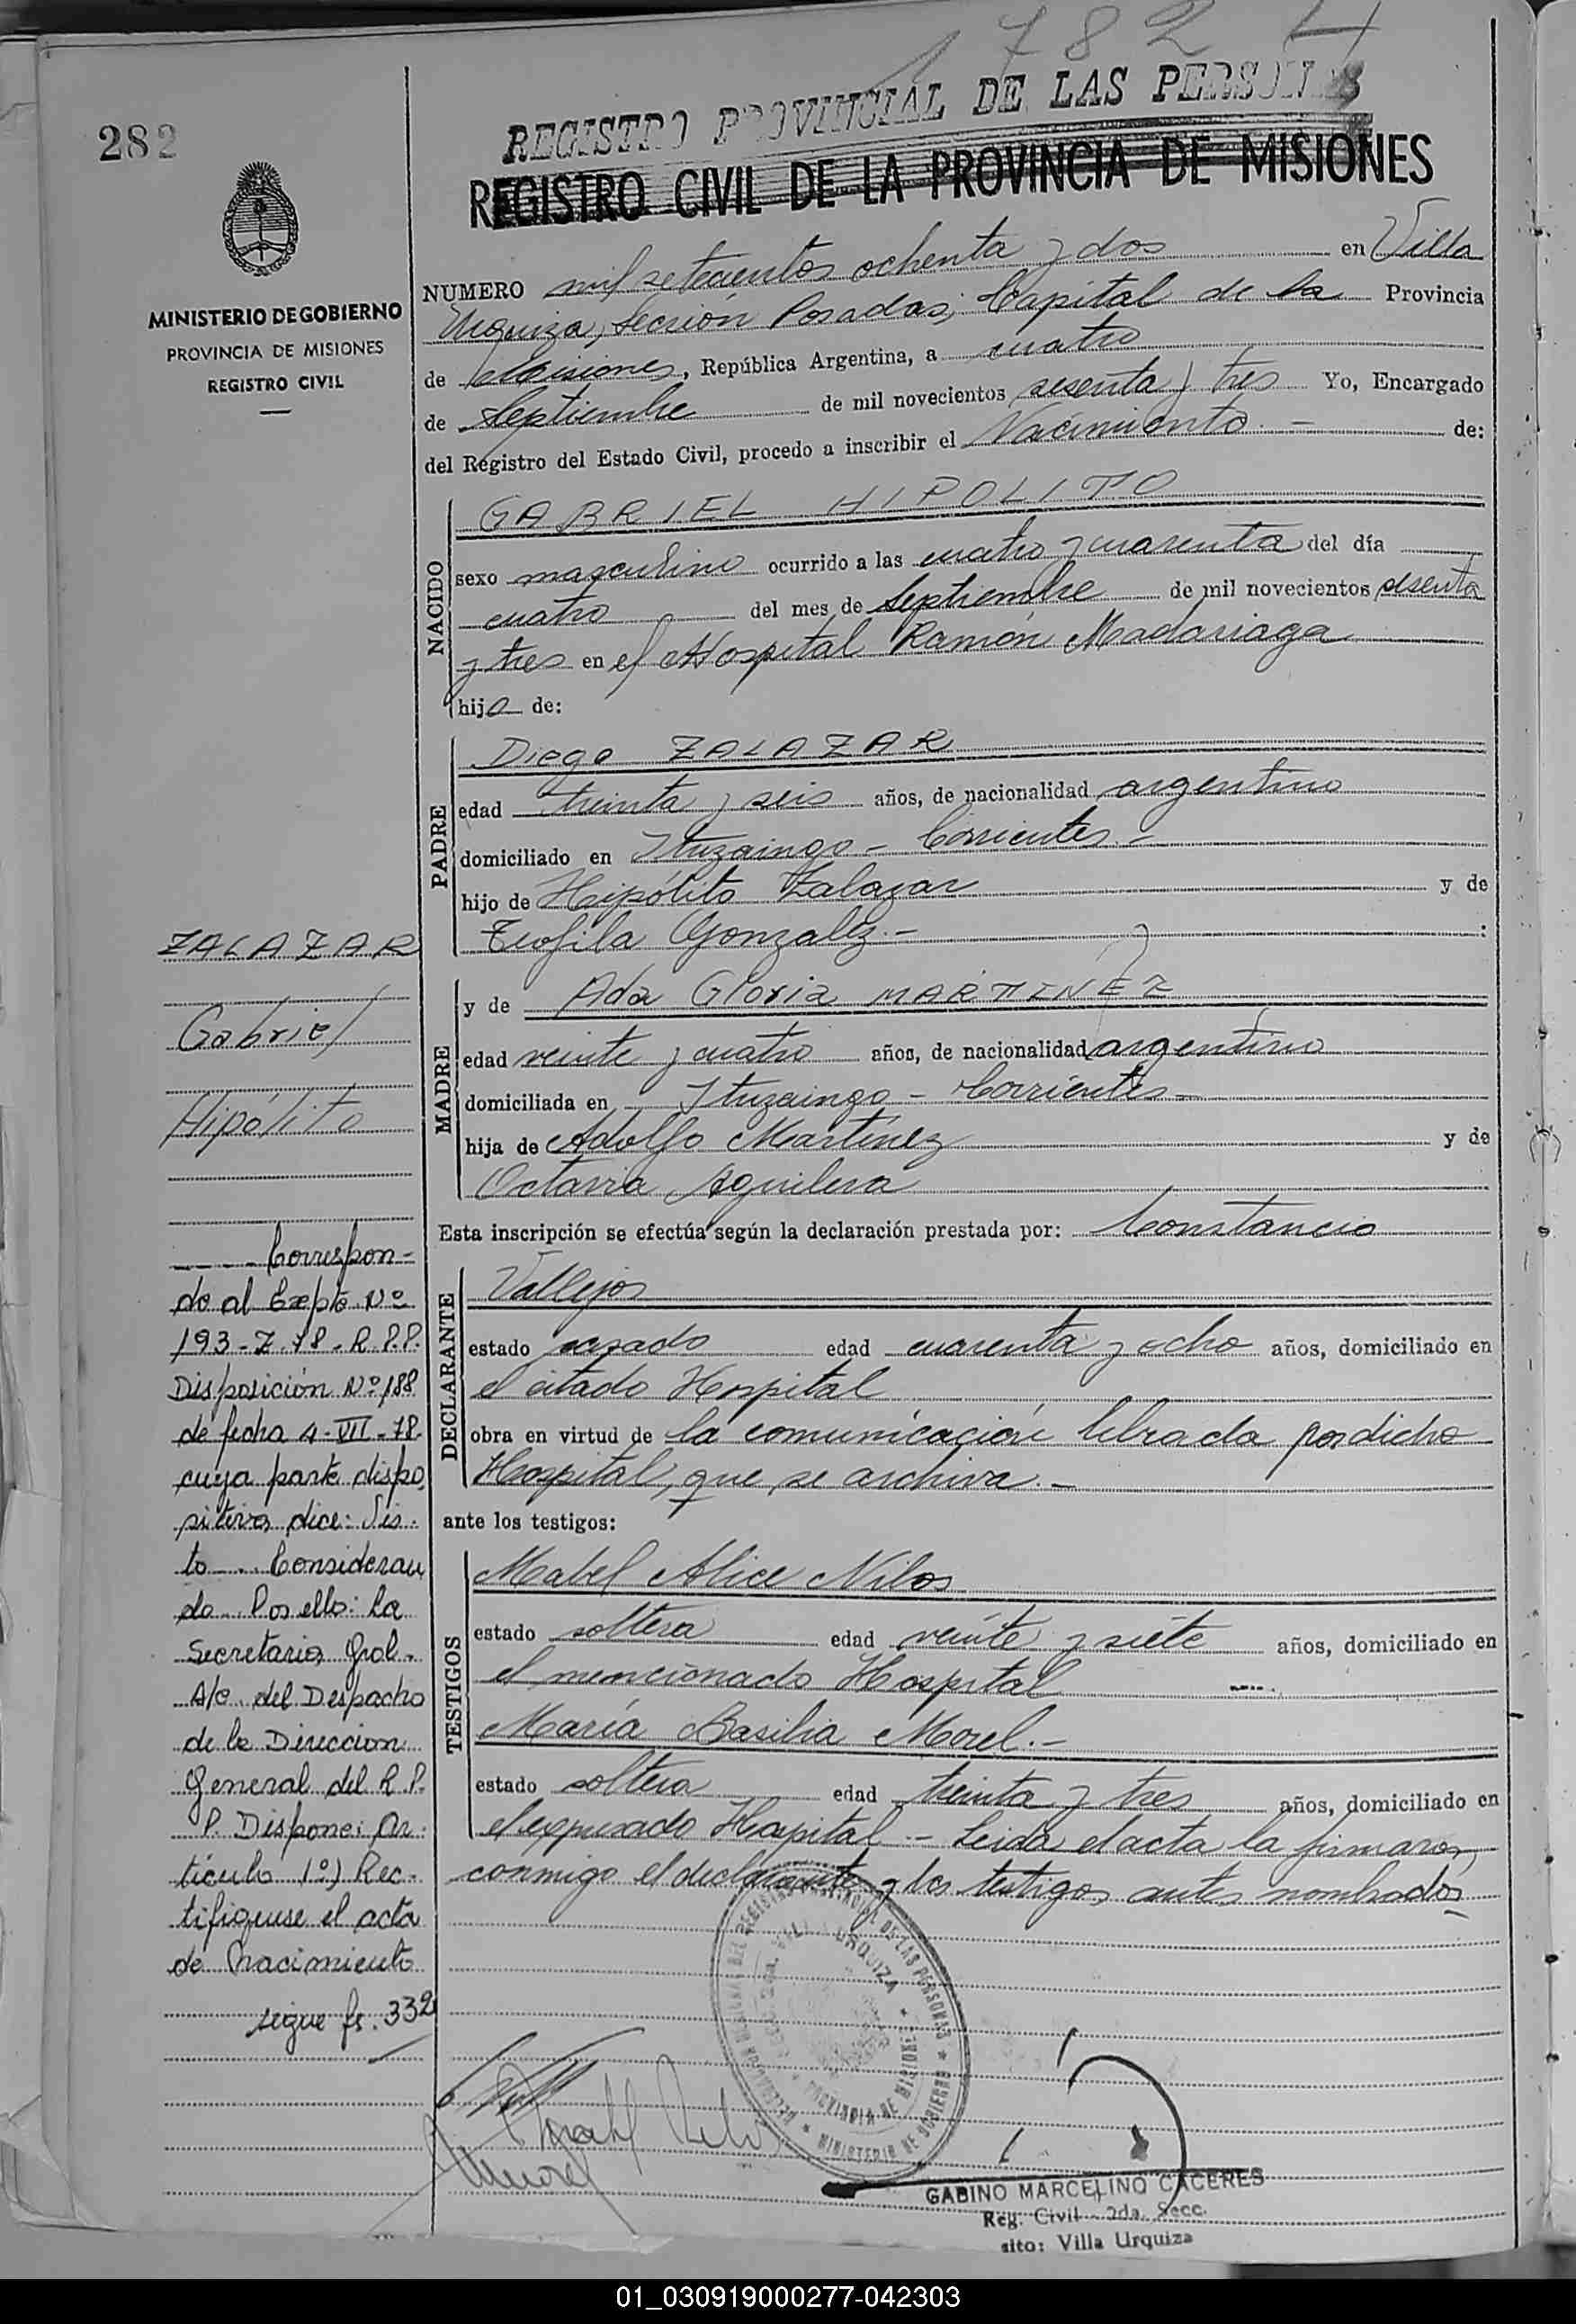 1782
282
REGISTRO PROVINCIAL DE LAS PERSONAS
REGISTRO CIVIL DE LA PROVINCIA DE MISIONES
MINISTERIO DE GOBIERNO
PROVINCIA DE MISIONES
REGISTRO CIVIL
NUMERO mil setecientos ochenta y dos en Villa
Urquiza, Sección Posadas, Capital de la Provincia
de Misiones, República Argentina, a cuatro
de Septiembre de mil novecientos sesenta y tres Yo, Encargado
del Registro del Estado Civil, procedo a inscribir el Nacimiento. - de:
NACIDO
GABRIEL HIPOLITO
sexo masculino ocurrido a las cuatro y cuarenta del día
cuatro del mes de Septiembre de mil novecientos sesenta
y tres en el Hospital Ramón Madariaga
hijo de:
PADRE
Diego ZALAZAR
edad treinta y seis años, de nacionalidad argentino
domiciliado en Ituzaingo - Corrientes. -
hijo de Hipólito Zalazar y de
Teofila Gonzalez. - :
MADRE
y de Ada Gloria MARTINEZ
edad veinte y cuatro años, de nacionalidad argentino
domiciliada en Ituzaingo - Corrientes -
hija de Adolfo Martínez y de
Octavia Aguilera
Esta inscripción se efectúa según la declaración prestada por: Constancio
DECLARANTE
Vallejos
estado casado edad cuarenta y ocho años, domiciliado en
el citado Hospital
obra en virtud de la comunicación librada por dicho
Hospital, que se archiva. -
ante los testigos:
TESTIGOS
Mabel Alice Nilos
estado soltera edad veinte y siete años, domiciliado en
el mencionado Hospital
María Basilia Morel. -
estado soltera edad treinta y tres años, domiciliado en
el expresado Hospital - Leida el acta la firmaron
conmigo el declarante y los testigos antes nombrados
ZALAZAR
Gabriel
Hipólito
Correspon-
de al Expte Nº
193-Z-78-R.P.P.
Disposición Nº 188
de fecha 4-VII-78-
cuya parte dispo
sitiva dice: Vis-
to ... Consideran
do... Por ello: La
Secretaria Gral.
A/c. del Despacho
de la Direccion
General del R.P.
P. Dispone: Ar-
tículo 1º) Rec-
tifiquese el acta
de nacimiento
sigue fs. 332
VILLA URQUIZA
PROVINCIA DE MISIONES
MINISTERIO DE GOBIERNO
Morel
GABINO MARCELINO CACERES
Reg. Civil - 2da. Secc.
sito: Villa Urquiza
01_030919000277-042303